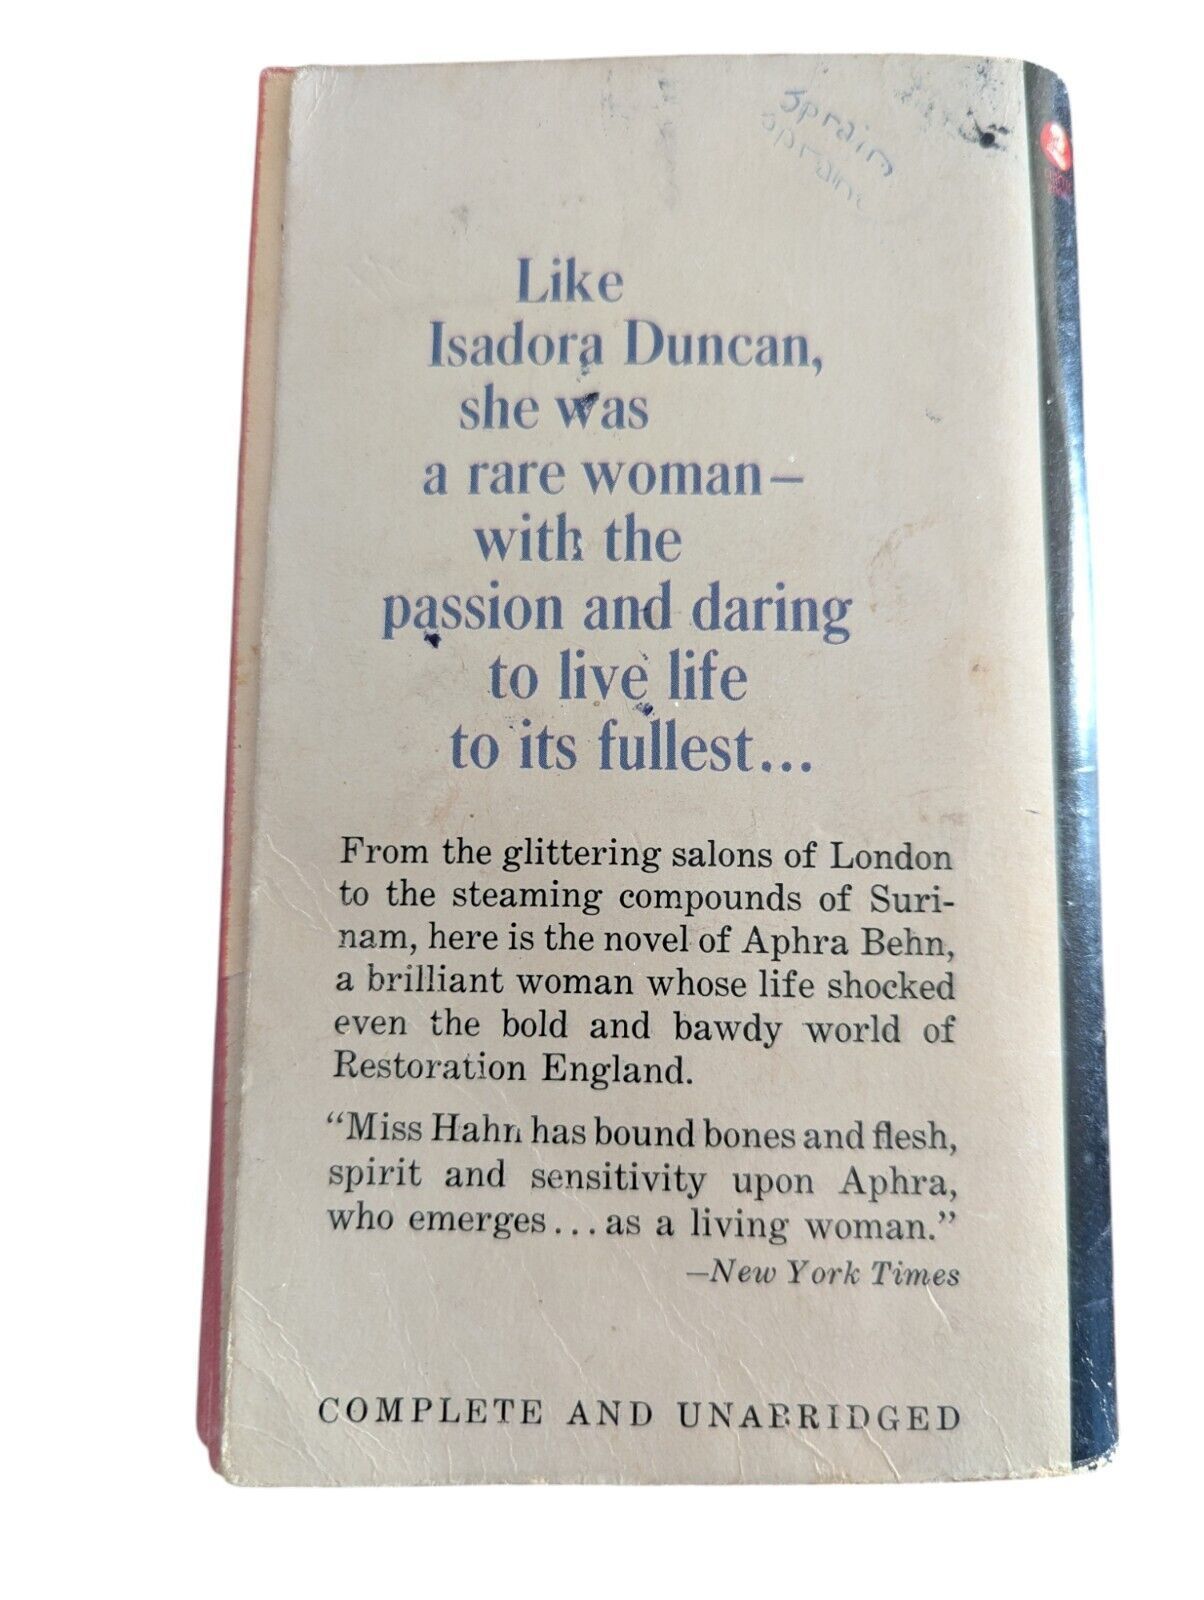 Sprain
Like
Isadora Duncan,
she was
a rare woman—
with the
passion and daring
to live life
to its fullest...
From the glittering salons of London
to the steaming compounds of Suri-
nam, here is the novel of Aphra Behn,
a brilliant woman whose life shocked
even the bold and bawdy world of
Restoration England.
“Miss Hahn has bound bones and flesh,
spirit and sensitivity upon Aphra,
who emerges...as a living woman.”
—New York Times
COMPLETE AND UNABRIDGED